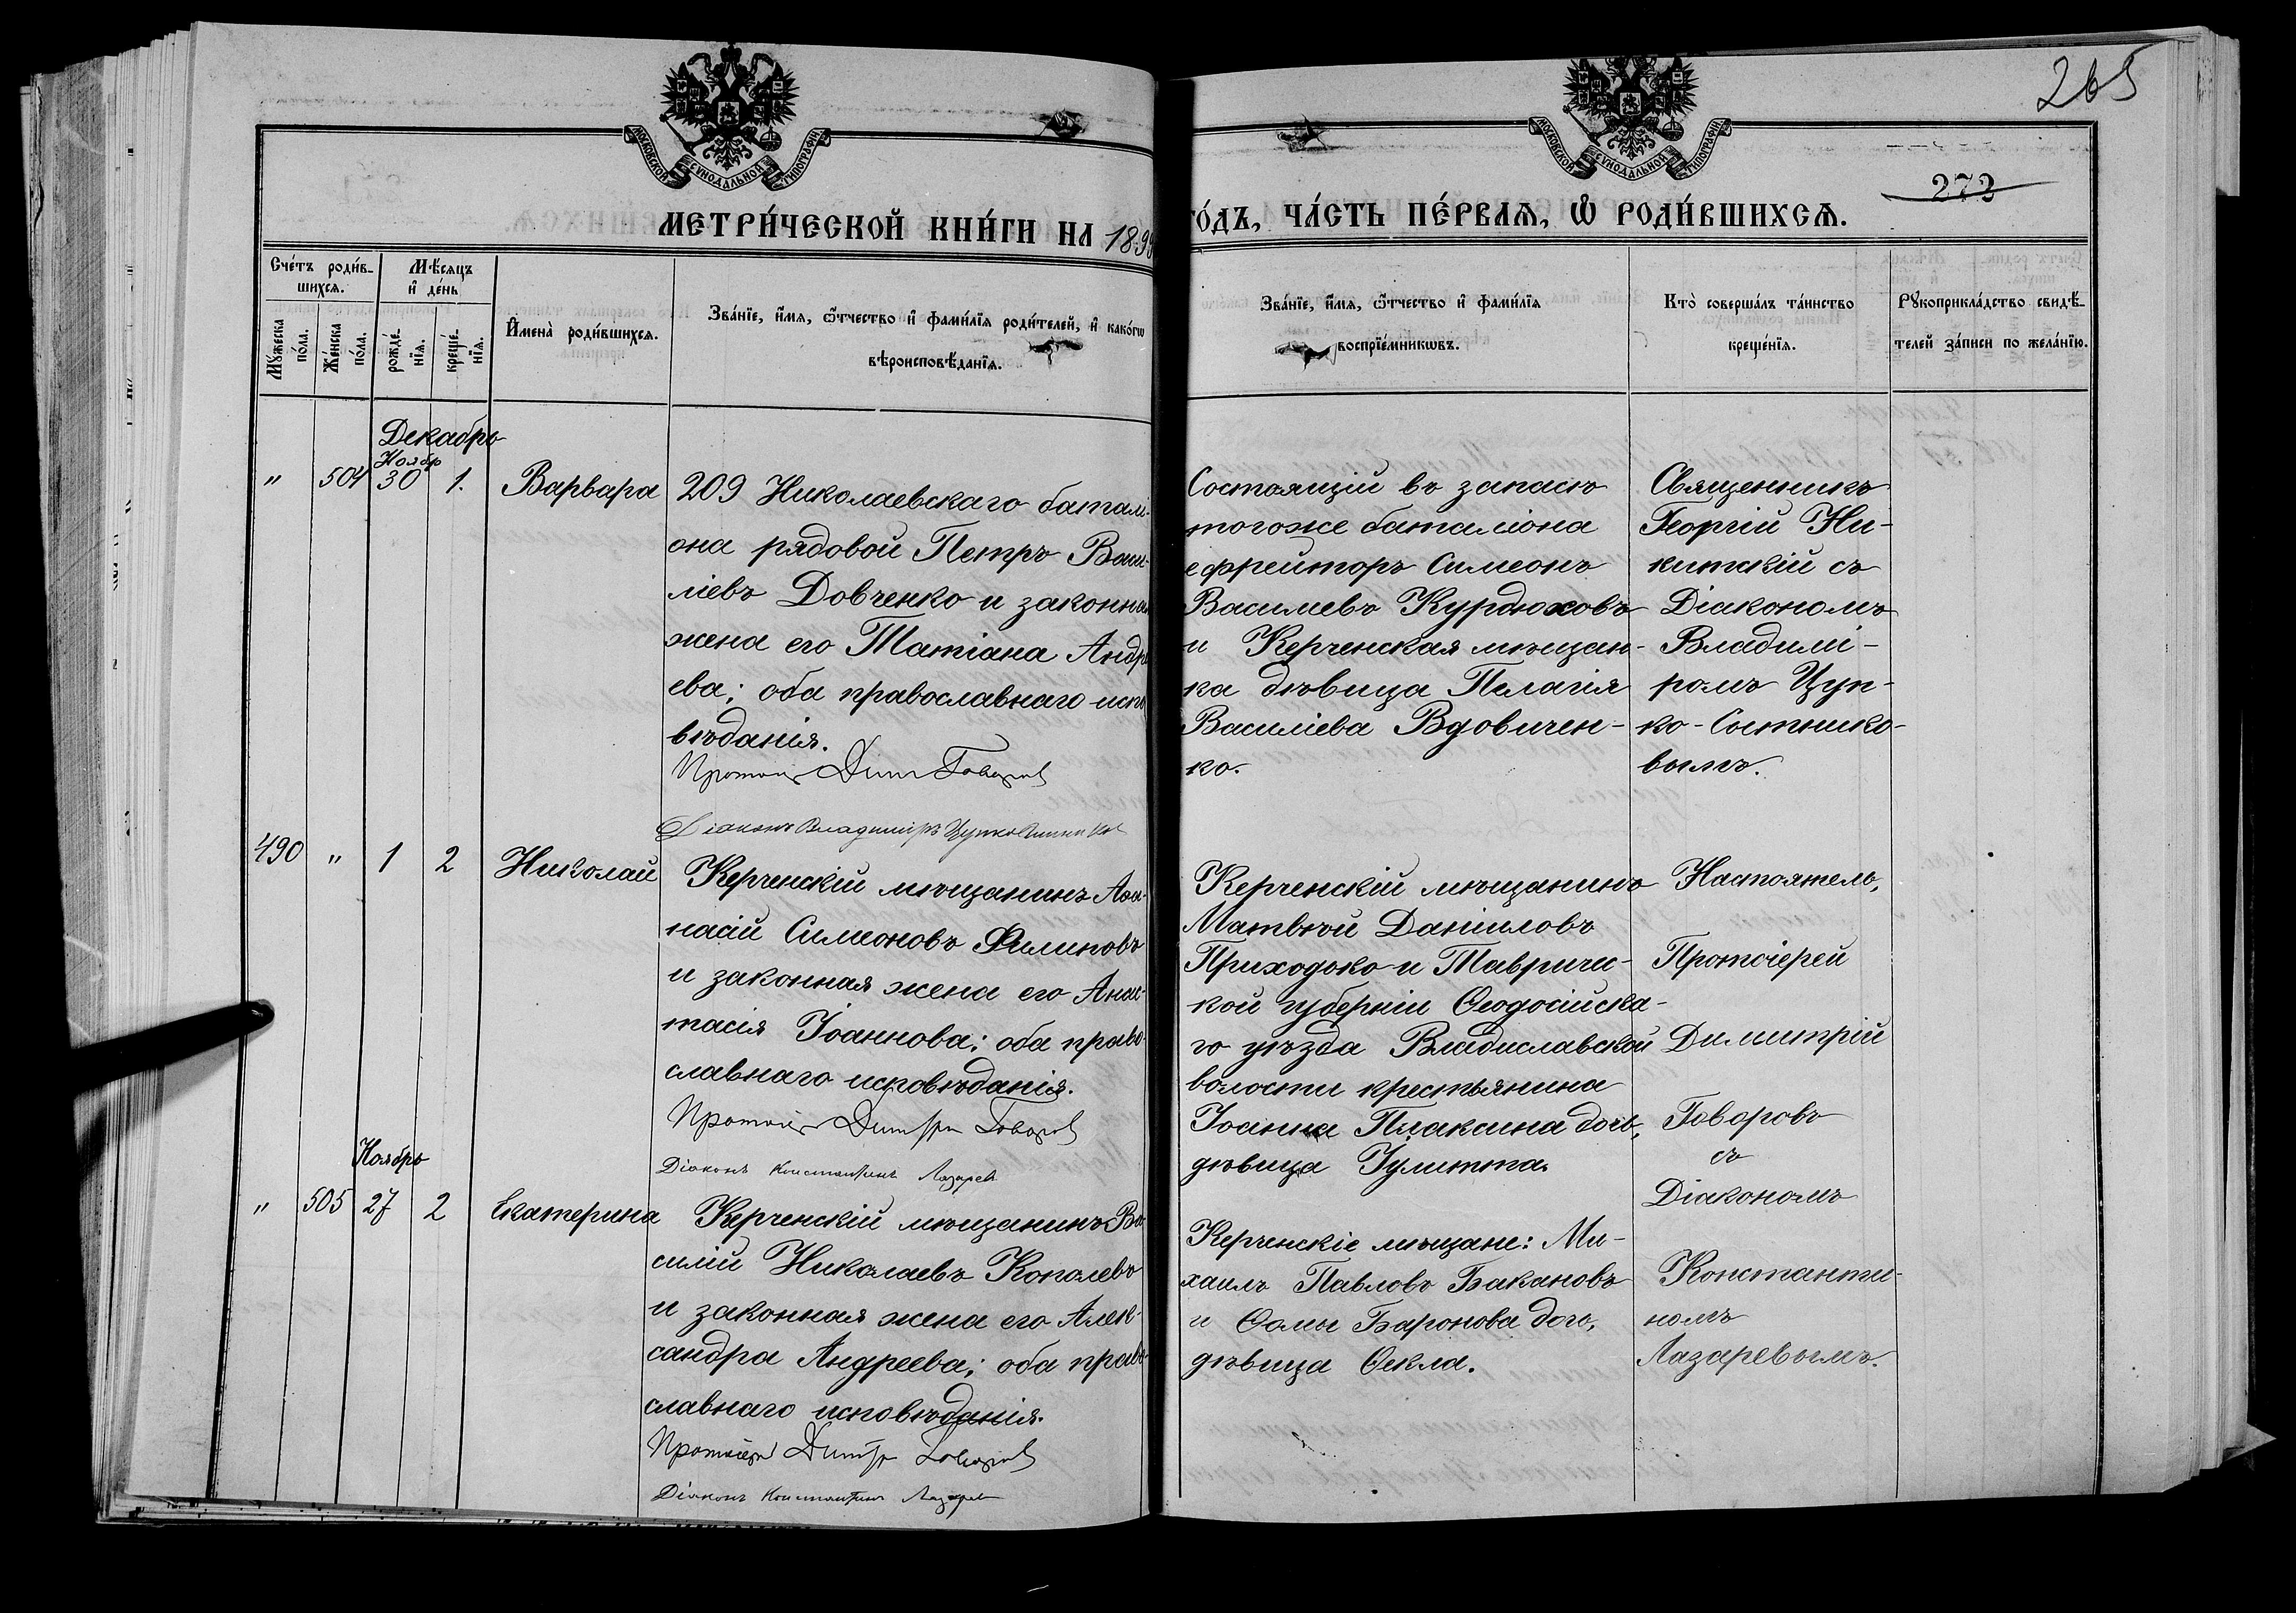 265
МОСКОВСКОЙ СѴНОДАЛЬНОЙ ТИПОГРАФІИ
МОСКОВСКОЙ СѴНОДАЛЬНОЙ ТИПОГРАФІИ
272
МЕТРИ́ЧЕСКОЙ КНИ́ГИ НА 189
ГО́ДЪ, ЧА́СТЬ ПЕ́РВАѦ, Ѽ РОДИ́ВШИХСѦ.
Сче́тъ роди́в-
шихсѧ.
Мѣ́сѧцъ
и҆ де́нь
Мꙋ́жеска
по́ла.
Же́нска
по́ла.
рожде́-
нїѧ.
креще́-
нїѧ.
И҆мена̀ роди́вшихсѧ.
Зва́нїе, и҆́мѧ, ѻ҆́тчество и҆ фами́лїѧ роди́телей, и҆ како́гѡ
вѣроисповѣ́данїѧ.
Зва́нїе, и҆́мѧ, ѻ҆́тчество и҆ фами́лїѧ
воспрїе́мникѡвъ.
Кто̀ соверша́лъ та́инство
креще́нїѧ.
Рꙋкоприкла́дство свидѣ́-
телей за́писи по жела́нїю.
Декабрь
Ноябр
" 504 30 1. Варвара
209 Николаевскаго баталі-
она рядовой Петръ Васи-
ліевъ Довченко и законная
жена его Татіана Андре
ева; оба православнаго испо
вѣданія.
Протоіер Дим Говоров
Діаконъ Владиміръ Цупко
Состоящій въ запасѣ
тогоже баталіона
ефрейторъ Симеонъ
Василіевъ Курдюховъ
и Керченская мѣщан-
ка дѣвица Пелагія
Василіева Вдовичен-
ко.
Священникъ
Георгій Ни-
китскій съ
Діакономъ
Владимі-
ромъ Цуп-
ко-Сотнико-
вымъ.
490 " 1 2 Николай
Керченскій мѣщанинъ Аѳа-
насій Симеоновъ Филиповъ
и законная жена его Анас-
тасія Іоаннова; оба право-
славнаго исповѣданія.
Протоіер Димитри Говоров
Діаконъ Константинъ Лазарев
Керченскій мѣщанинъ
Матвѣй Даніиловъ
Приходько и Тавричес-
кой губерніи Ѳеодосійска-
го уѣзда Владиславской
волости крестьянина
Іоанна Плаксина дочь,
дѣвица Іулитта.
Настоятель,
Протоіерей
Димитрій
Говоровъ
съ
Діакономъ
Константи-
номъ
Лазаревымъ.
Ноябрь
" 505 27 2 Екатерина
Керченскій мѣщанинъ Ва-
силій Николаевъ Кополевъ
и законная жена его Алек-
сандра Андреева; оба право-
славнаго исповѣданія.
Протоіерей Димитр Говоров
Діаконъ Константинъ Лазарев
Керченскіе мѣщане: Ми-
хаилъ Павловъ Бакановъ
и Ѳомы Баронова дочь,
дѣвица Ѳекла.